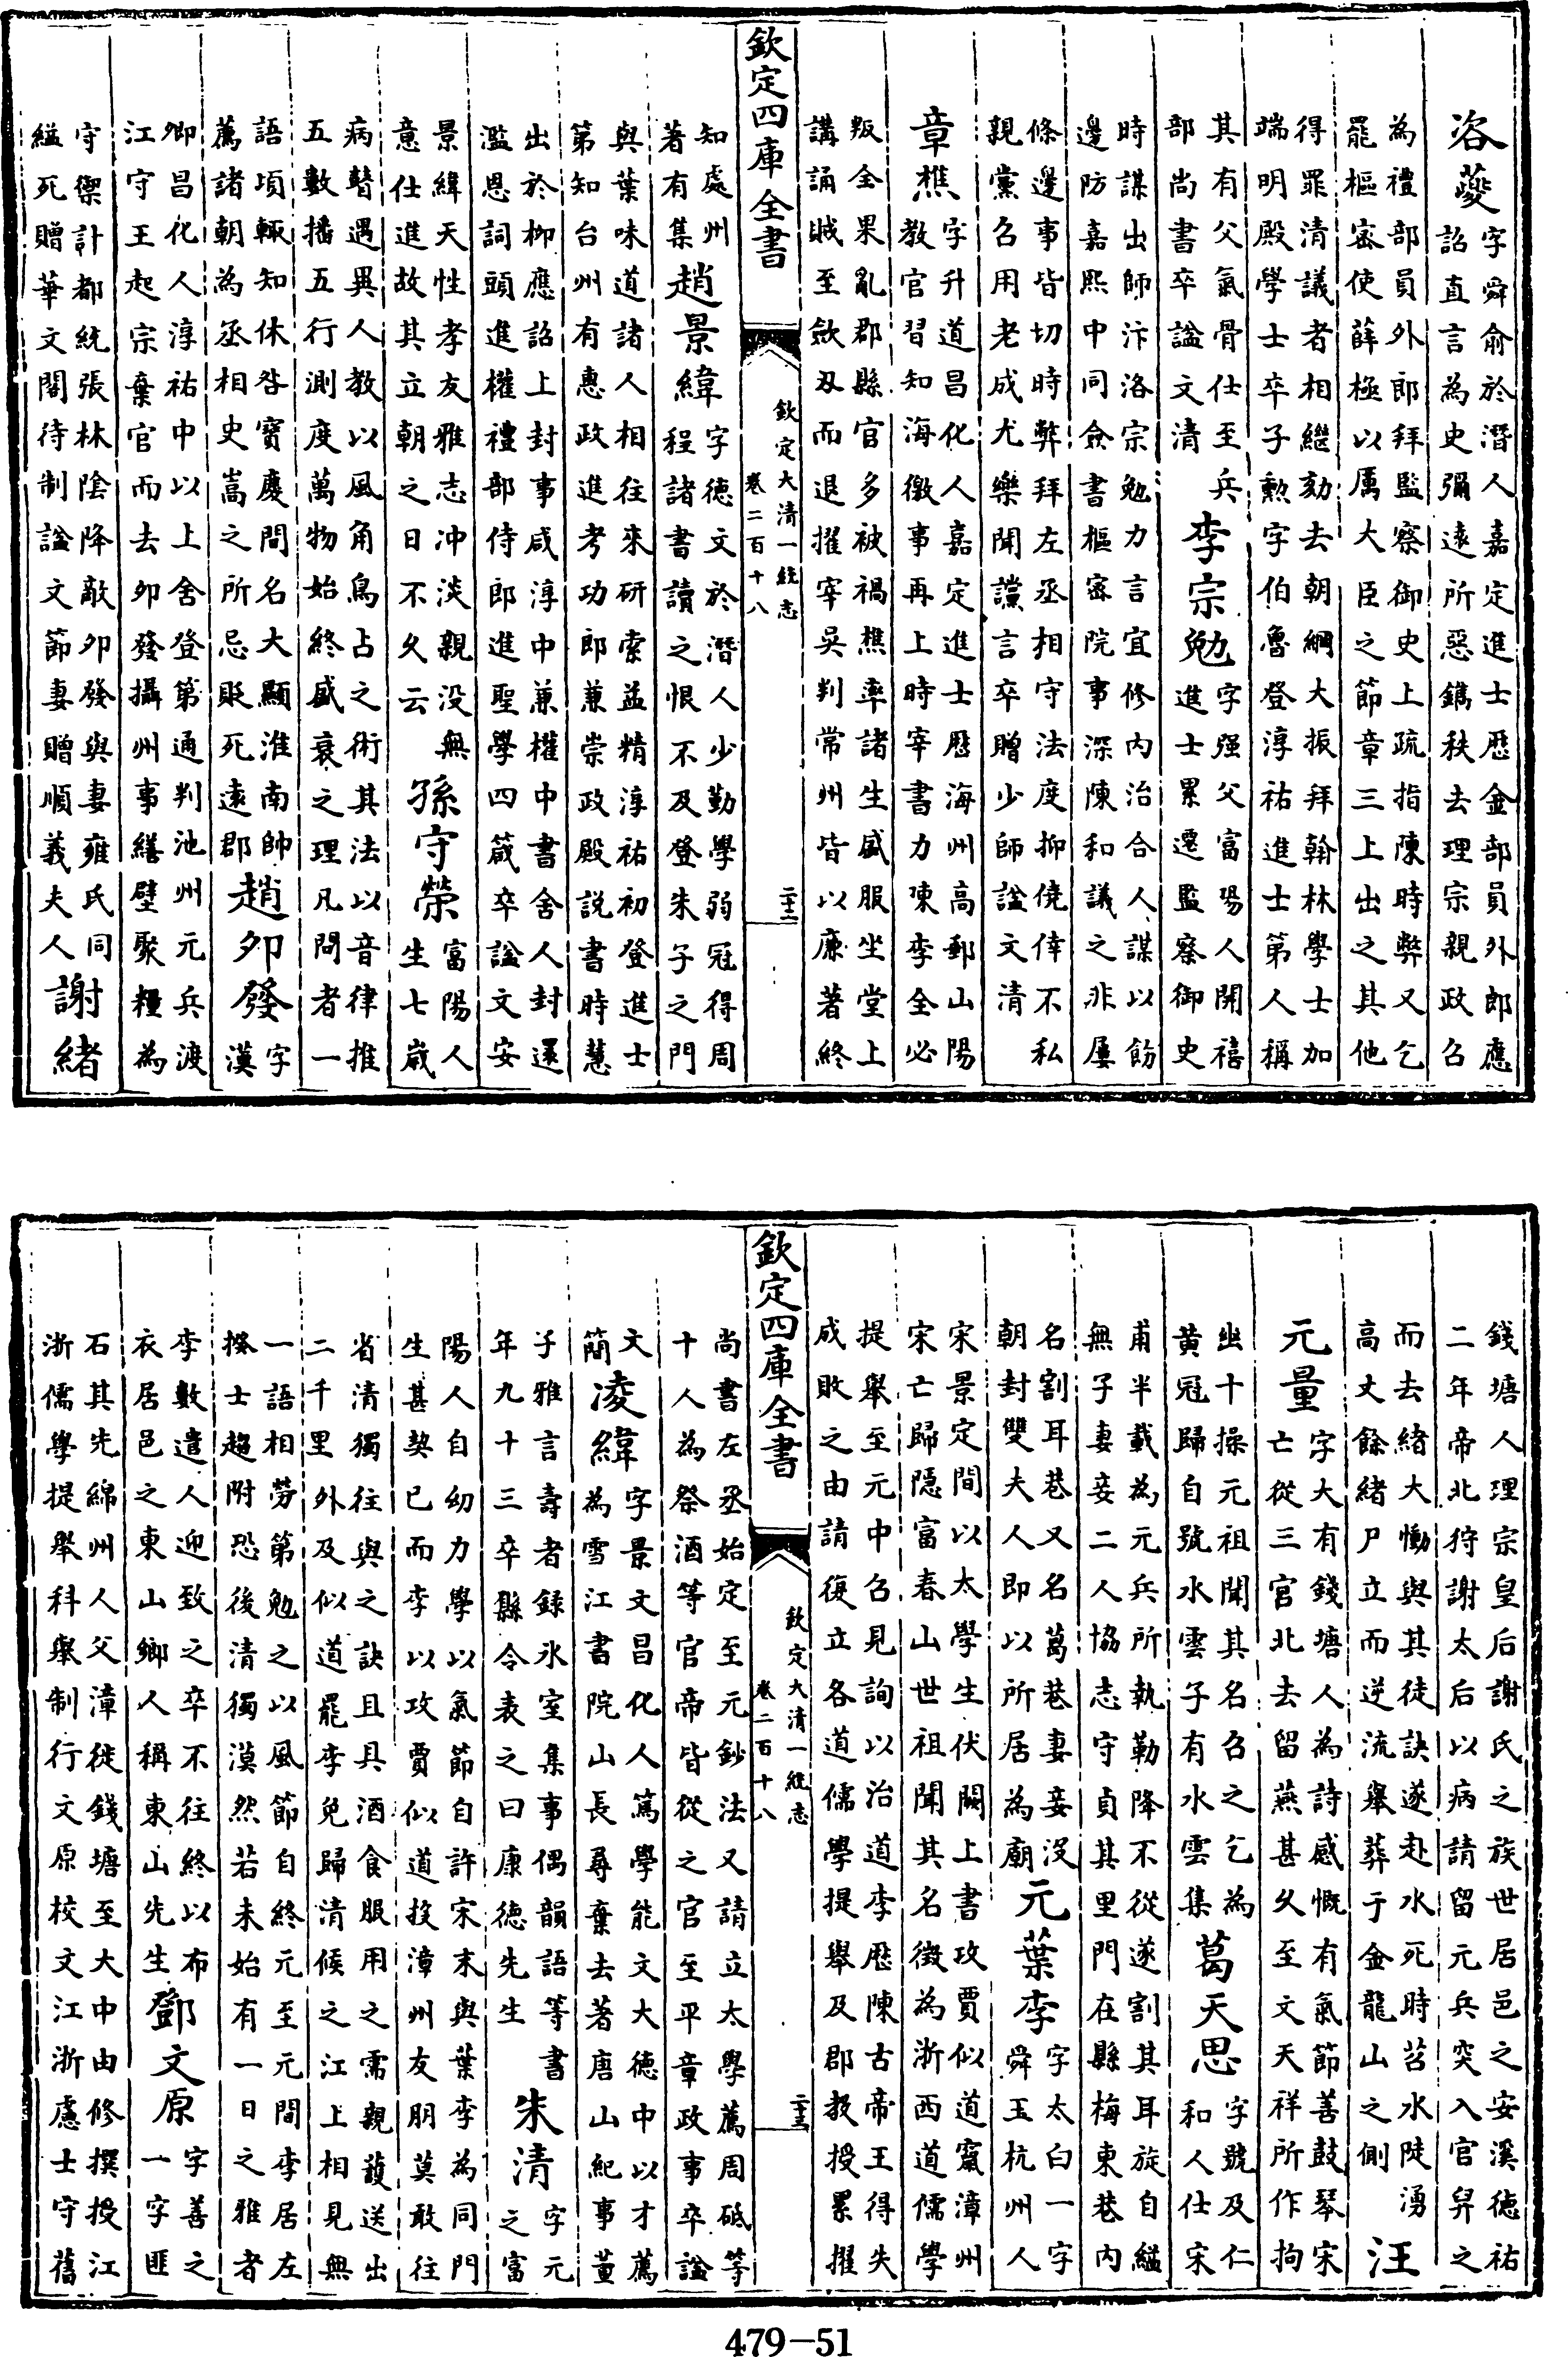 洛夔字舜俞於潛人嘉定進士歴金部員外郎應
詔直言為史彌遠所惡鐫秩去理宗親政召
為禮部員外郎拜監察御史上疏指陳時弊又乞
罷樞密使薛極以厲大臣之節章三上出之其他
得罪清議者相繼劾去朝綱大振拜翰林學士加
端明殿學士卒子勲字伯魯登淳祐進士第人稱
其有父氣骨仕至兵
部尚書卒諡文清
李宗勉字强父富陽人開禧
進士累遷監察御史
時謀出師汴洛宗勉力言宜修内治合人謀以飭
邊防嘉熙中同僉書樞密院事深陳和議之非屢
條邊事皆切時弊拜左丞相守法度抑僥倖不私
親黨召用老成尤樂聞讜言卒贈少師諡文清
章樵字升道昌化人嘉定進士歴海州高郵山陽
教官習知海徼事再上時宰書力陳李全必
叛全果亂郡縣官多被禍樵率諸生盛服坐堂上
講誦賊至斂刄而退擢宰吳判常州皆以亷著終
欽定四庫全書
欽定大清一統志
卷二百十八
二十二
知處州
著有集
趙景緯字徳文於潛人少勤學弱冠得周
程諸書讀之恨不及登朱子之門
與葉味道諸人相往來研索益精淳祐初登進士
第知台州有惠政進考功郎兼崇政殿説書時慧
出於栁應詔上封事咸淳中兼權中書舍人封還
濫恩詞頭進權禮部侍郎進聖學四箴卒諡文安
景緯天性孝友雅志冲淡親没無
意仕進故其立朝之日不乆云
孫守榮富陽人
生七嵗
病瞽遇異人教以風角鳥占之術其法以音律推
五數播五行測度萬物始終盛衰之理凡問者一
語頃輒知休咎寳慶間名大顯淮南帥
薦諸朝為丞相史嵩之所忌貶死逺郡
趙夘發字
漢
卿昌化人淳祐中以上舍登第通判池州元兵渡
江守王起宗棄官而去夘發攝州事繕壁聚糧為
守禦計都統張林陰降敵夘發與妻雍氏同
縊死贈華文閣待制諡文節妻贈順義夫人
謝緒
錢塘人理宗皇后謝氏之族世居邑之安溪徳祐
二年帝北狩謝太后以病請留元兵突入官舁之
而去緒大慟與其徒訣遂赴水死時苕水陡湧
高丈餘緒尸立而逆流舉葬于金龍山之側
汪
元量字大有錢塘人為詩感慨有氣節善鼓琴宋
亡從三宫北去留燕甚乆至文天祥所作拘
幽十操元祖聞其名召之乞為
黄冠歸自號水雲子有水雲集
葛天思字號及仁
和人仕宋
甫半載為元兵所執勒降不從遂割其耳旋自縊
無子妻妾二人協志守貞其里門在縣梅東巷内
名割耳巷又名葛巷妻妾没
朝封雙夫人即以所居為廟
元葉李字太白一字
舜玉杭州人
宋景定間以太學生伏闕上書攻賈似道竄漳州
宋亡歸隠富春山世祖聞其名徴為浙西道儒學
提舉至元中召見詢以治道李歴陳古帝王得失
成敗之由請復立各道儒學提舉及郡教授累擢
欽定四庫全書
欽定大清一統志
卷二百十八
二十三
尚書左丞始定至元鈔法又請立太學薦周砥等
十人為祭酒等官帝皆從之官至平章政事卒諡
文
簡
凌緯字景文昌化人篤學能文大徳中以才薦
為雪江書院山長尋棄去著唐山紀事董
子雅言壽者録氷室集事偶韻語等書
年九十三卒縣令表之曰康徳先生
朱清字元
之富
陽人自幼力學以氣節自許宋末與葉李為同門
生甚契已而李以攻賈似道投漳州友朋莫敢往
省清獨往與之訣且具酒食服用之需親護送出
二千里外及似道罷李免歸清候之江上相見無
一語相勞第勉之以風節自終元至元間李居左
揆士趨附恐後清獨漠然若未始有一日之雅者
李數遣人迎致之卒不往終以布
衣居邑之東山鄉人稱東山先生
鄧文原字善之
一字匪
石其先綿州人父漳徙錢塘至大中由修撰授江
浙儒學提舉科舉制行文原校文江浙慮士守舊
479-51